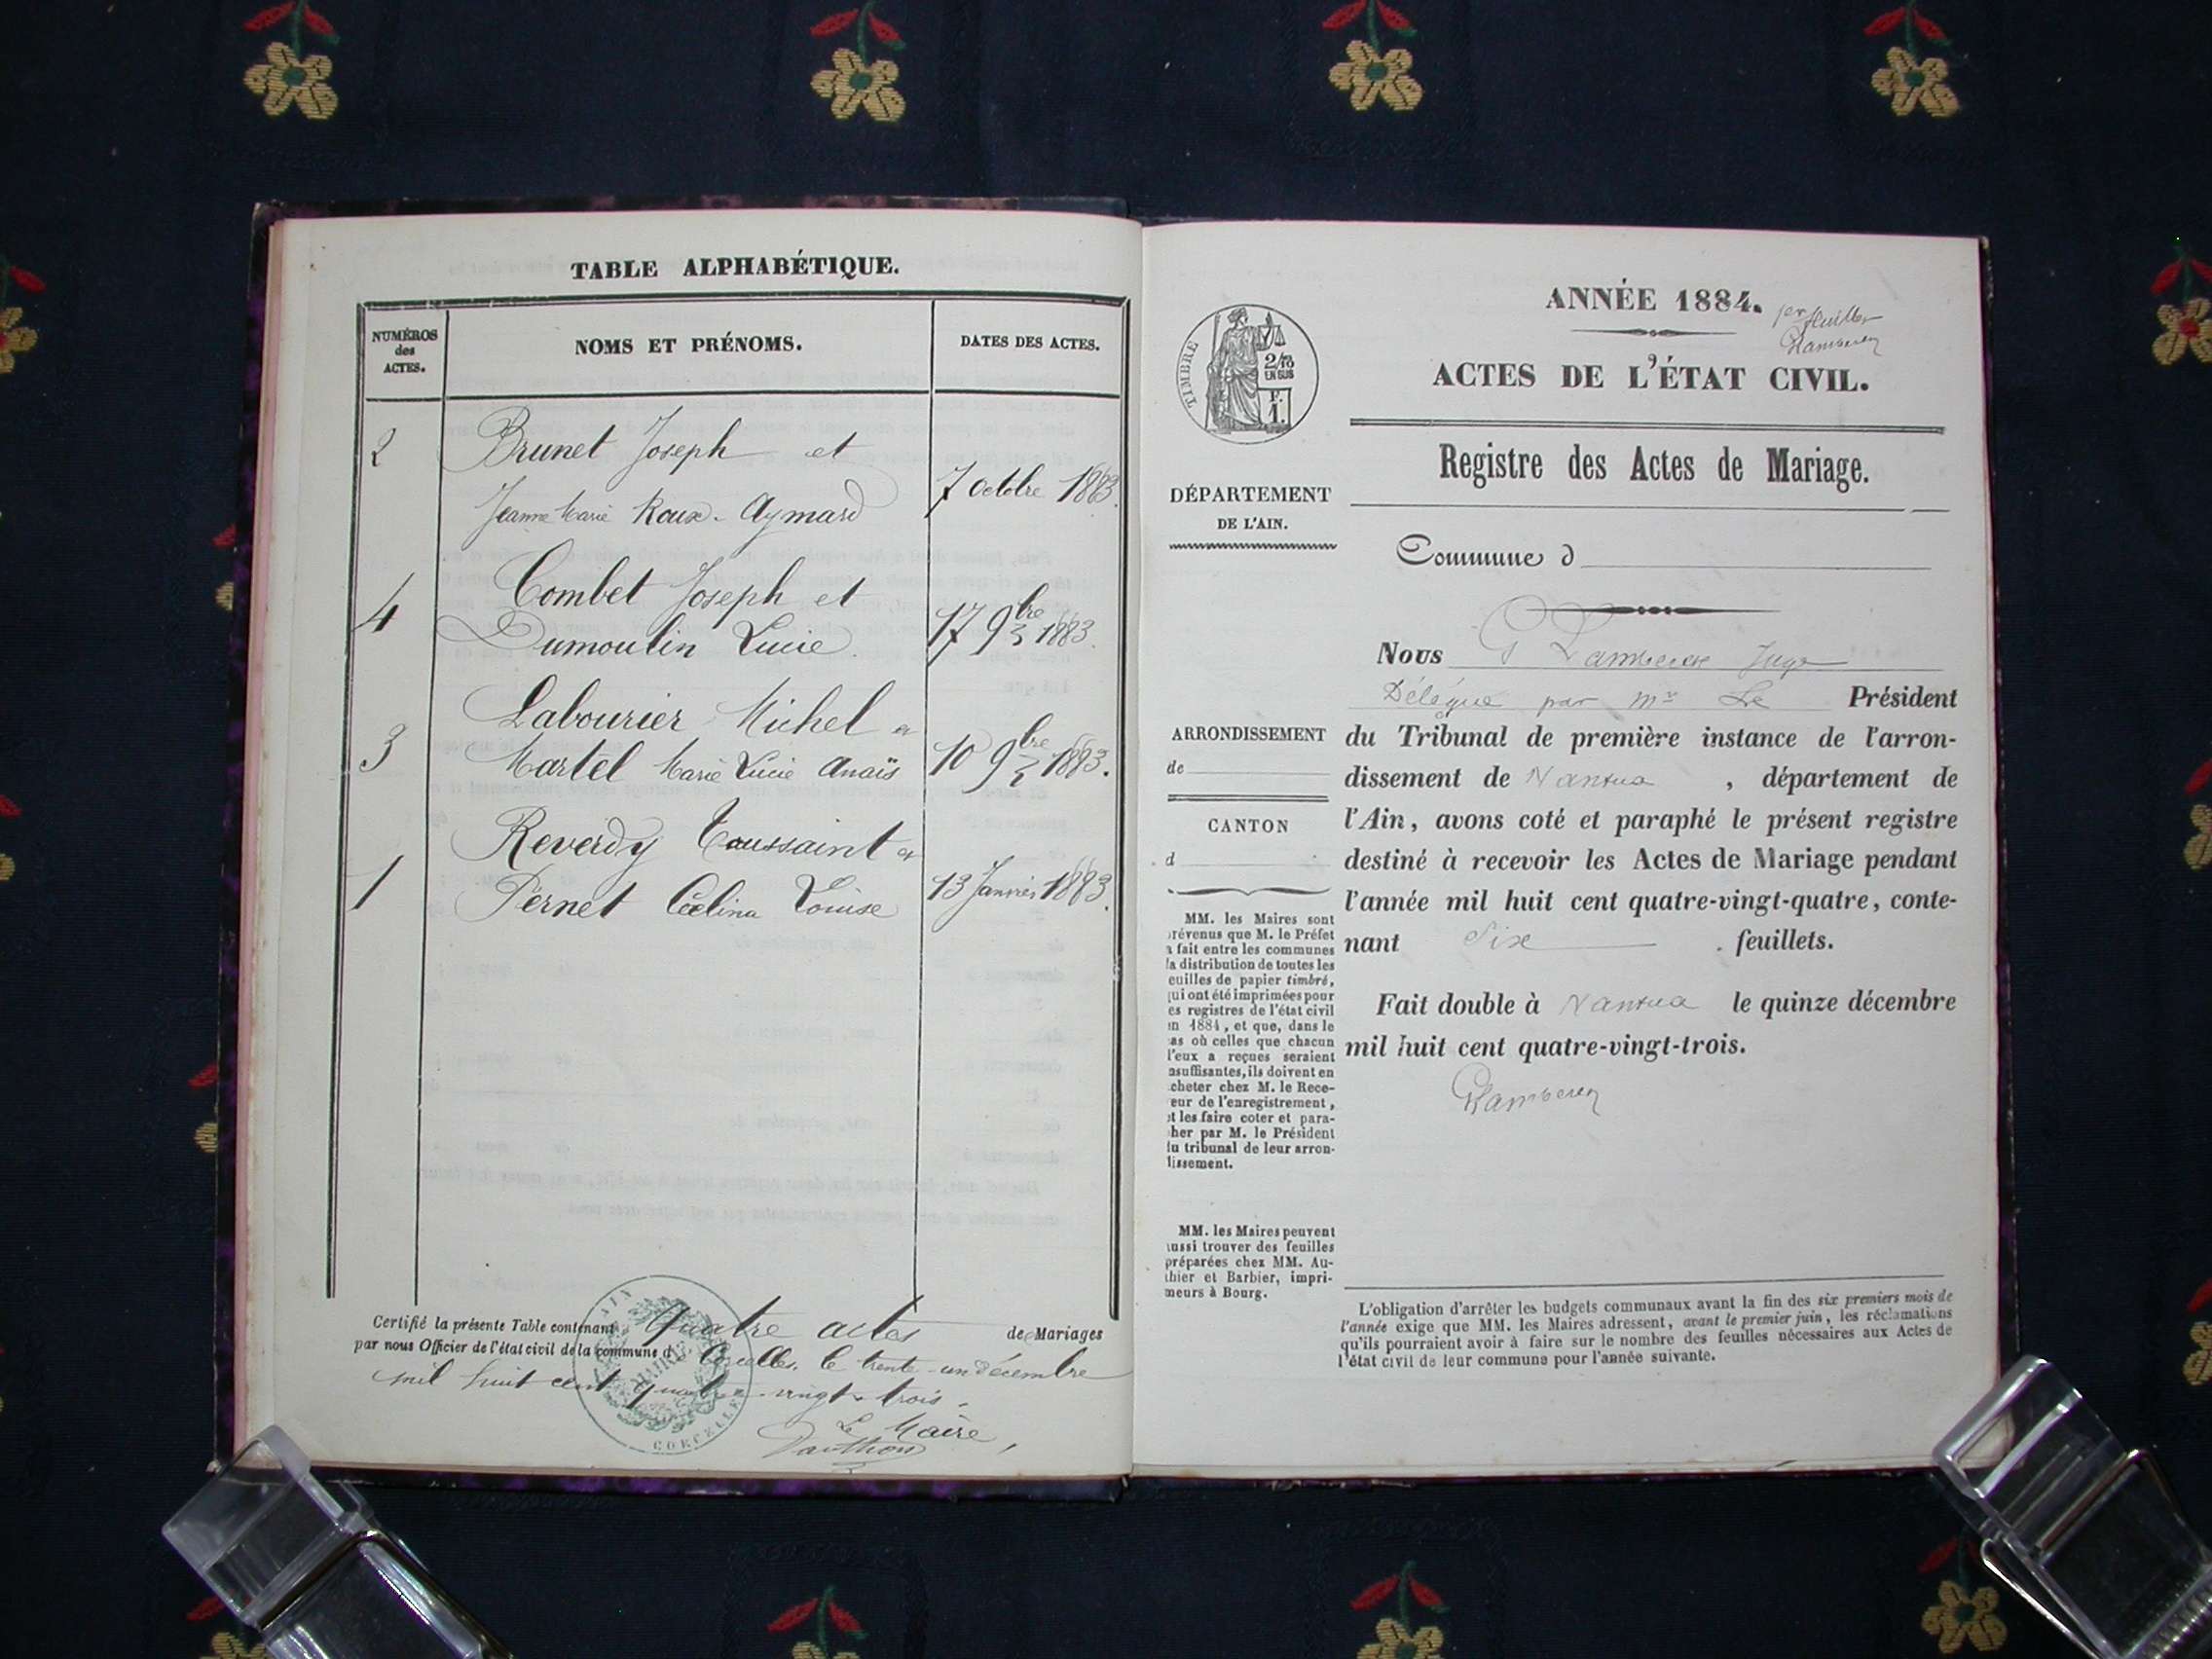 TABLE ALPHABÉTIQUE.
NUMÉROS
des
ACTES.
NOMS ET PRÉNOMS.
DATES DES ACTES.
2
Brunet Joseph et
Jeanne Marie Roux-Aymard
7 octobre 1883.
4
Combet Joseph et
Dumoulin Lucie.
17 9bre 1883.
3
Labourier Michel et
Martel Marie Lucie Anaïs
10 9bre 1883.
1
Reverdy Toussaint et
Pernet Célina Louise
13 Janvier 1883.
Certifié la présente Table contenant quatre actes de Mariages
par nous Officier de l'état civil de la commune d Corcelles, le trente-un décembre
mil huit cent quatre-vingt-trois.
Le Maire,
MAIRIE
CORCELLES
AIN
TIMBRE
2/10
EN SUS
F.
1.
DÉPARTEMENT
DE L'AIN.
ARRONDISSEMENT
de
CANTON
d
MM. les Maires sont
révenus que M. le Préfet
a fait entre les communes
la distribution de toutes les
euilles de papier timbré,
qui ont été imprimées pour
es registres de l'état civil
en 1884, et que, dans le
as où celles que chacun
l'eux a reçues seraient
nsuffisantes, ils doivent en
cheter chez M. le Rece-
eur de l'enregistrement,
et les faire coter et para-
her par M. le Président
du tribunal de leur arron-
lissement.
MM. les Maires peuvent
ussi trouver des feuilles
préparées chez MM. Au-
thier et Barbier, impri-
meurs à Bourg.
ANNÉE 1884.
1er feuillet
ACTES DE L'ÉTAT CIVIL.
Registre des Actes de Mariage.
Commune d
Nous Juge
Délégué par Mr Le Président
du Tribunal de première instance de l'arron-
dissement de Nantua, département de
l'Ain, avons coté et paraphé le présent registre
destiné à recevoir les Actes de Mariage pendant
l'année mil huit cent quatre-vingt-quatre, conte-
nant Six feuillets.
Fait double à Nantua le quinze décembre
mil huit cent quatre-vingt-trois.
L'obligation d'arrêter les budgets communaux avant la fin des six premiers mois de
l'année exige que MM. les Maires adressent, avant le premier juin, les réclamations
qu'ils pourraient avoir à faire sur le nombre des feuilles nécessaires aux Actes de
l'état civil de leur commune pour l'année suivante.